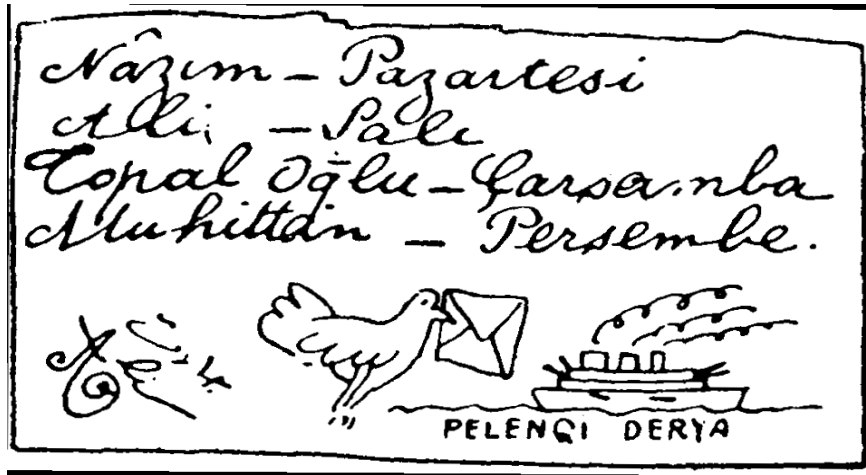 Nâzım – Pazartesi
Ali – Salı
Topal Oğlu – Çarşamba
Muhittin – Perşembe.
PELENGİ DERYA